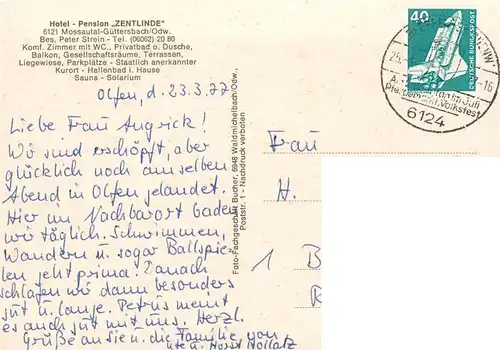 Hotel - Pension „ZENTLINDE"
6121 Mossautal-Güttersbach/Odw.
Bes. Peter Strein - Tel. (06062) 20 80
Komf. Zimmer mit WC., Privatbad o. Dusche,
Balkon, Gesellschaftsräume, Terrassen,
Liegewiese, Parkplätze - Staatlich anerkannter
Kurort - Hallenbad i. Hause
Sauna - Solarium
Olfen, d. 23.3.77
Liebe Frau Augrick!
Wir sind erschöpft, aber
glücklich noch am selben
Abend in Olfen gelandet.
Hier im Nachbarort baden
wir täglich. Schwimmen,
Wandern u. sogar Ballspie-
len geht prima. Danach
schlafen wir dann besonders
gut u. lange. Petrus meint
es auch gut mit uns. Herzl.
Grüße an Sie u. die Familie von
Ute u. Horst Hollatz
Foto-Fachgeschäft Bucher, 6948 Waldmichelbach/Odw.,
Poststr. 1 - Nachdruck verboten
40
DEUTSCHE BUNDESPOST
25.
-16
im Juli
Pferdemarkt/Volksfest
6124
Frau
H.
1 B